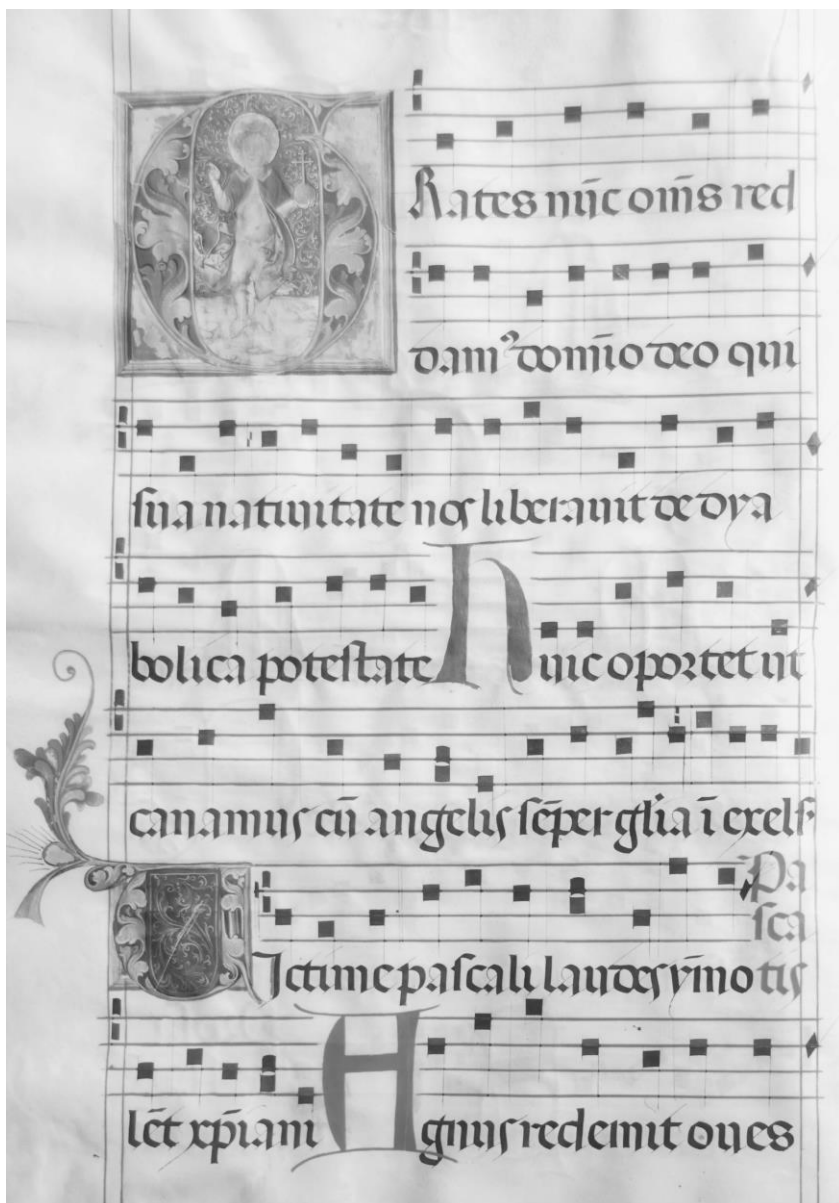 GRates nūc om̄s red
dam⁹ dom̄io deo qui
sua natiuitate nos liberauit de dya
bolica potestate huic oportet ut
canamus cū angelis sēper glīa ī exels
Pa
sca
Uictime pascali laudes ymo tis
lēt xp̄iani Agnus redemit oues